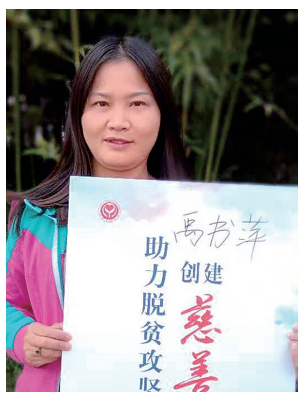 禹书萍
助力脱贫攻坚
创建
慈善